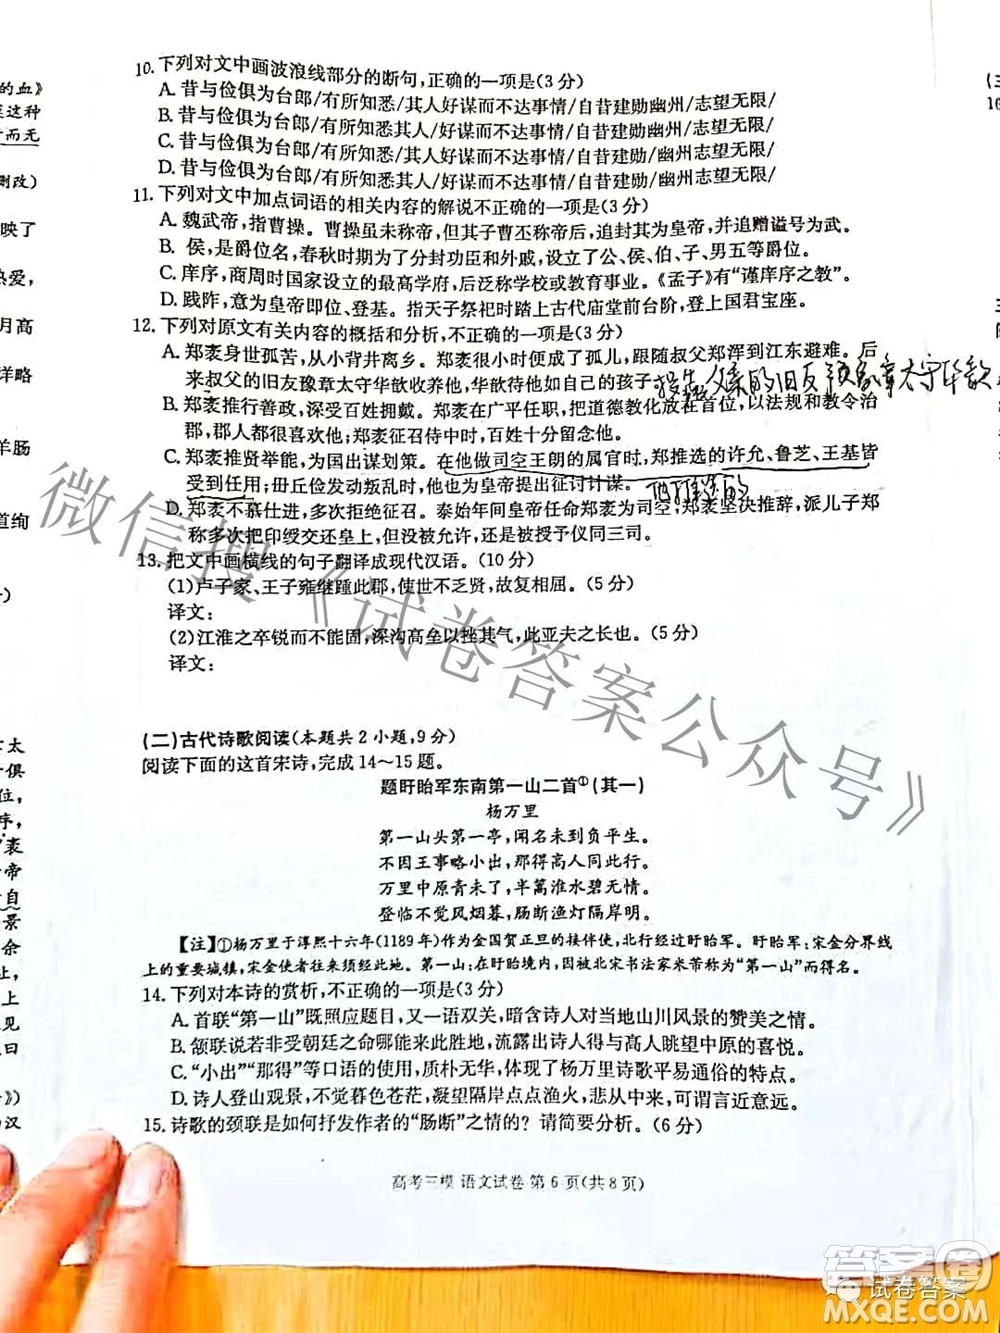 的血》
至这种
而无
删改)
映了
热爱,
月高
详略
羊肠
道绚
太
俱
位,
序,
袤
帝
自
景
余
上
见
曰
》)
汉
10. 下列对文中画波浪线部分的断句,正确的一项是(3 分)
A. 昔与俭俱为台郎/有所知悉/其人好谋而不达事情/自昔建勋幽州/志望无限/
B. 昔与俭俱为台郎/有所知悉其人/好谋而不达事情/自昔建勋幽州/志望无限/
C. 昔与俭俱为台郎/有所知悉其人/好谋而不达事情/自昔建勋/幽州志望无限/
D. 昔与俭俱为台郎/有所知悉/其人好谋而不达事情/自昔建勋/幽州志望无限/
11. 下列对文中加点词语的相关内容的解说不正确的一项是(3 分)
A. 魏武帝,指曹操。曹操虽未称帝,但其子曹丕称帝后,追封其为皇帝,并追赠谥号为武。
B. 侯,是爵位名,春秋时期为了分封功臣和外戚,设立了公、侯、伯、子、男五等爵位。
C. 庠序,商周时国家设立的最高学府,后泛称学校或教育事业。《孟子》有“谨庠序之教”。
D. 践阼,意为皇帝即位、登基。指天子祭祀时踏上古代庙堂前台阶,登上国君宝座。
12. 下列对原文有关内容的概括和分析,不正确的一项是(3 分)
A. 郑袤身世孤苦,从小背井离乡。郑袤很小时便成了孤儿,跟随叔父郑浑到江东避难。后
来叔父的旧友豫章太守华歆收养他,华歆待他如自己的孩子。
父泰的旧友豫章太守华歆
B. 郑袤推行善政,深受百姓拥戴。郑袤在广平任职时,把道德教化放在首位,以法规和教令治
郡,郡人都很喜欢他;郑袤征召待中时,百姓十分留念他。
C. 郑袤推贤举能,为国出谋划策。在他做司空王朗的属官时,郑推选的许允、鲁芝、王基皆
受到任用;毌丘俭发动叛乱时,他为皇帝提出征讨计谋。
D. 郑袤不慕仕进,多次拒绝征召。泰始年间皇帝任命郑袤为司空;郑袤坚决推辞,派儿子郑
称多次把印绶交还皇上,但没被允许,还是被授予仪同三司。
13. 把文中画横线的句子翻译成现代汉语。(10 分)
(1)卢子家、王子雍继踵此郡,使世不乏贤,故复相屈。(5 分)
译文:
(2)江淮之卒锐而不能固,深沟高垒以挫其气,此亚夫之长也。(5 分)
译文:
(二)古代诗歌阅读(本题共 2 小题,9 分)
阅读下面的这首宋诗,完成 14～15 题。
题盱眙军东南第一山二首①(其一)
杨万里
第一山头第一亭,闻名未到负平生。
不因王事略小出,那得高人同此行。
万里中原青未了,半篙淮水碧无情。
登临不觉风烟暮,肠断渔灯隔岸明。
【注】①杨万里于淳熙十六年(1189 年)作为金国贺正旦的接伴使,北行经过盱眙军。盱眙军:宋金分界线
上的重要城镇,宋金使者往来须经此地。第一山:在盱眙境内,因被北宋书法家米芾称为“第一山”而得名。
14. 下列对本诗的赏析,不正确的一项是(3 分)
A. 首联“第一山”既照应题目,又一语双关,暗含诗人对当地山川风景的赞美之情。
B. 颔联叙述因受朝廷之命而能来此胜地,流露出诗人得以与高人眺望中原的喜悦。
C. “小出”“那得”等口语的使用,质朴无华,体现了杨万里诗歌平易通俗的特点。
D. 诗人登山观景,不觉暮色苍茫,凝望隔岸点点渔火,悲从中来,可谓言近意远。
15. 诗歌的颈联是如何抒发作者的“肠断”之情的？请简要分析。(6 分)
高考三模 语文试卷 第 6 页(共 8 页)
微信搜《试卷答案公众号》
试卷答案
答案圈
MXQE.COM